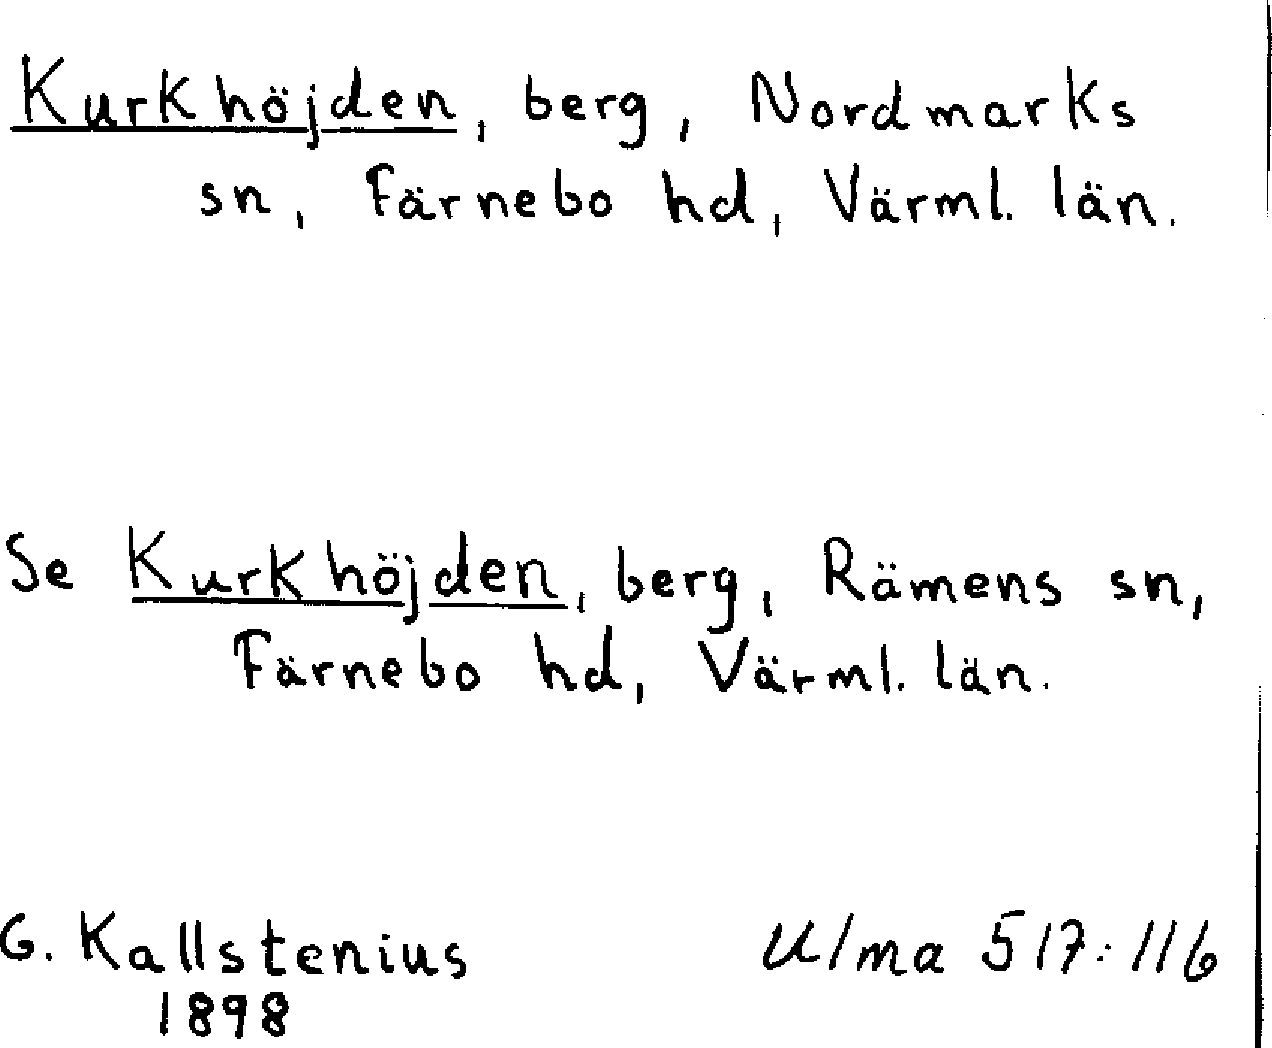 Kurkhöjden, berg, Nordmarks
sn, Färnebo hd, Värml. län.
Se Kurkhöjden, berg, Rämens sn,
Färnebo hd, Värml. län.
G. Kallstenius
1898
Ulma 517:116